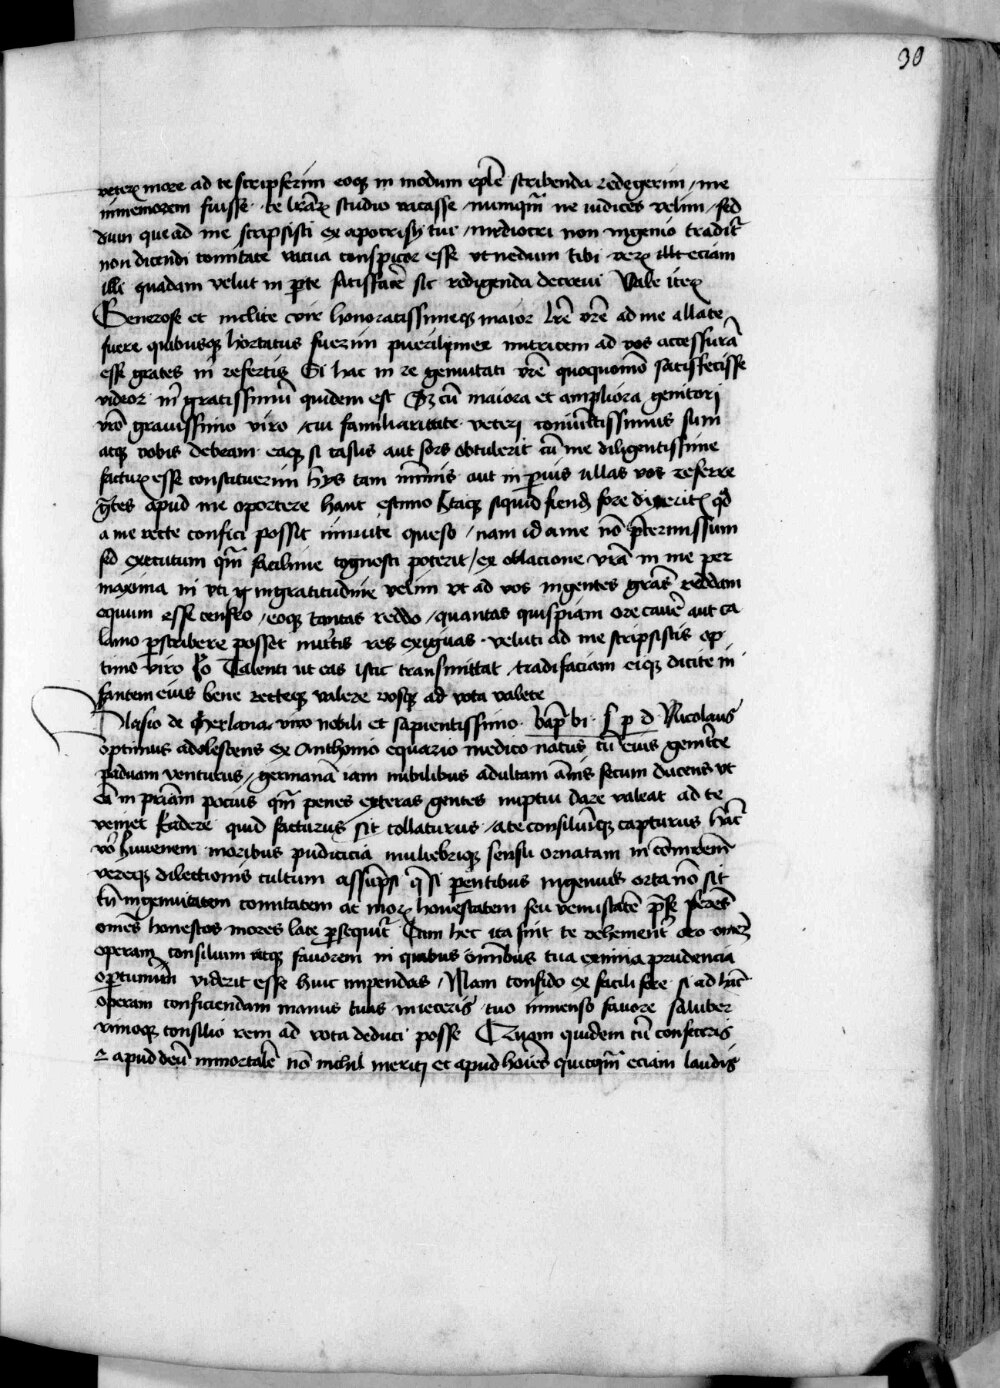 30
more ad te scripserim eoq in modum eplē scribenda redegerim / me
inmemorem fuisse · te lrārꝝ studio vacasse / numqm̄ ne iudices velim / sed
dum que ad me scripsisti ex apocrisÿ tui / mediocri non ingenio tradit᷑
non dicendi comitate vacua conspicor esse vt nedum tibi verꝝ illi eciam
illi quadam velut in pᵃte satisfacē sic redigenda decrevi Vale iterꝝ
Generose et inclite vir honoratissimeq maior lrē vrē ad me allate
fuere quibusq hortatus fuerim nutricem ad vos accessurā
esse grates in refertis Si hac in re genuitati vrē quoquomō satisfecisse
videor m̄ gratissimū quidem est Sꝫ cū maiora et ampliora genitori
vrō gravissimo viro / cui familiaritate veteri sum
atq vobis debeam eaq si casus aut sors obtulerit cū me diligentissime
facturꝝ esse constituerim hÿs tam aut in ꝑuis ullas vos referre
gr̄tes apud me oportere haut estimo Itaq siquid fiend fore qd̄
a me recte confici possit queso / nam id a me nō p̄termissum
sed executum qm̄ facilime cognosci poterit / ex oblacione vrā in me per
maxima ni vti ingratitudine velim vt ad vos ingentes grās reddam
equum esse censeo / eoq tantas reddo / quantas quispiam ore aut ca
lamo ꝑscribere posset res exiguas · veluti ad me scripsistis op
timo viro Jo Talenti ut eas istic transmittat / tradi faciam eiq dicite in
fantem eius bene recteq valere vosq ad vota valete
Blasio de Gerlana viro nobili et sapientissimo · bap̄ bi · S p d Nicolaus
optimus adolescens ex Anthonio equario medico natus cū eius genit᷑ce
paduam venturus / germanā iam nubilibus adultam ānis secum ducens vt
eā in pr̄iam pocius qm̄ penes exteras gentes nuptui dare valeat ad te
veniet quid facturus sit collaturus / a te consiliūq capturus hāc
vō Juvenem moribus pudicicia muliebriq sensu ornatam in
vereq dilectionis cultum assūpsi q si ꝑentibus ingenuis orta nō sit
tn̄ ingenuitatem comitatem ac morꝝ honestatem seu venustatē p̄ se ferēs
omēs honestos mores late ꝑsequit᷑ Cum hec ita sint te vehement᷑ oro omēꝫ
operam consilium atq favorem in quibus omībus tua eximia prudencia
oportunum viderit esse huic impendas / Nam confido ex facili fore · si ad hāc
operam conficiendam manus tuas inieceris / tuo immenso favore saluber
rimoq consilio rem ad vota deduci posse Quam quidem cū confeceris
apud deū inmortalē nō nichil meriti et apud hoīes quicqm̄ eciam laudis